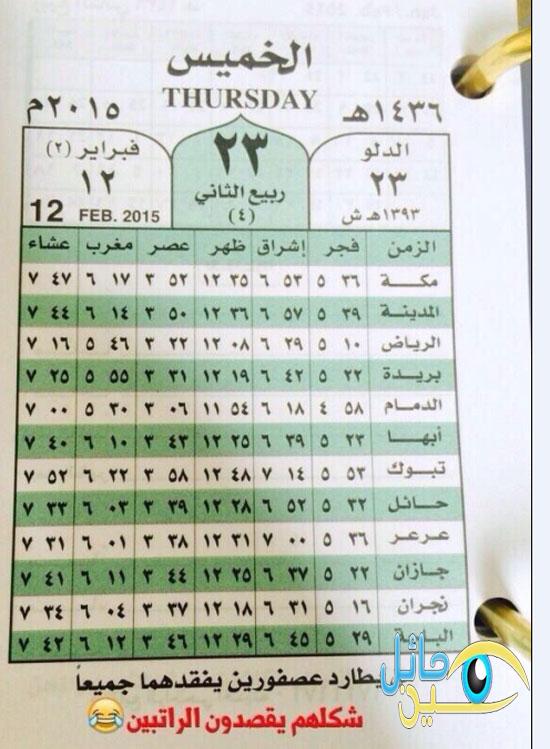 الخميس
THURSDAY
١٤٣٦هـ
٢٠١٥م
الدلو
٢٣
١٣٩٣هـ ش
٢٣
ربيع الثاني
(٤)
فبراير (٢)
١٢
12 FEB. 2015
الزمن فجر إشراق ظهر عصر مغرب عشاء
مكة ٣٦ ٥ ٥٣ ٦ ٣٥ ١٢ ٥٢ ٣ ١٧ ٦ ٤٧ ٧
المدينة ٣٩ ٥ ٥٧ ٦ ٣٦ ١٢ ٥٠ ٣ ١٤ ٦ ٤٤ ٧
الرياض ١٠ ٥ ٢٩ ٦ ٠٨ ١٢ ٢٢ ٣ ٤٦ ٥ ١٦ ٧
بريدة ٢٢ ٥ ٤٢ ٦ ١٩ ١٢ ٣١ ٣ ٥٥ ٥ ٢٥ ٧
الدمام ٥٨ ٤ ١٨ ٦ ٥٤ ١١ ٠٦ ٣ ٣٠ ٥ ٠٠ ٧
أبها ٢٣ ٥ ٣٩ ٦ ٢٥ ١٢ ٤٣ ٣ ١٠ ٦ ٤٠ ٧
تبوك ٥٣ ٥ ١٤ ٧ ٤٨ ١٢ ٥٨ ٣ ٢٢ ٦ ٥٢ ٧
حائل ٣٢ ٥ ٥٢ ٦ ٢٨ ١٢ ٣٩ ٣ ٠٣ ٦ ٣٣ ٧
عرعر ٣٦ ٥ ٠٠ ٧ ٣١ ١٢ ٣٨ ٣ ٠١ ٦ ٣١ ٧
جازان ٢٢ ٥ ٣٧ ٦ ٢٥ ١٢ ٤٤ ٣ ١١ ٦ ٤١ ٧
نجران ١٦ ٥ ٣١ ٦ ١٨ ١٢ ٣٧ ٣ ٠٤ ٦ ٣٤ ٧
٢٩ ٥ ٤٥ ٦ ٢٩ ١٢ ٤٦ ٣ ١٢ ٦ ٤٢ ٧
يطارد عصفورين يفقدهما جميعاً
شكلهم يقصدون الراتبين
حائل